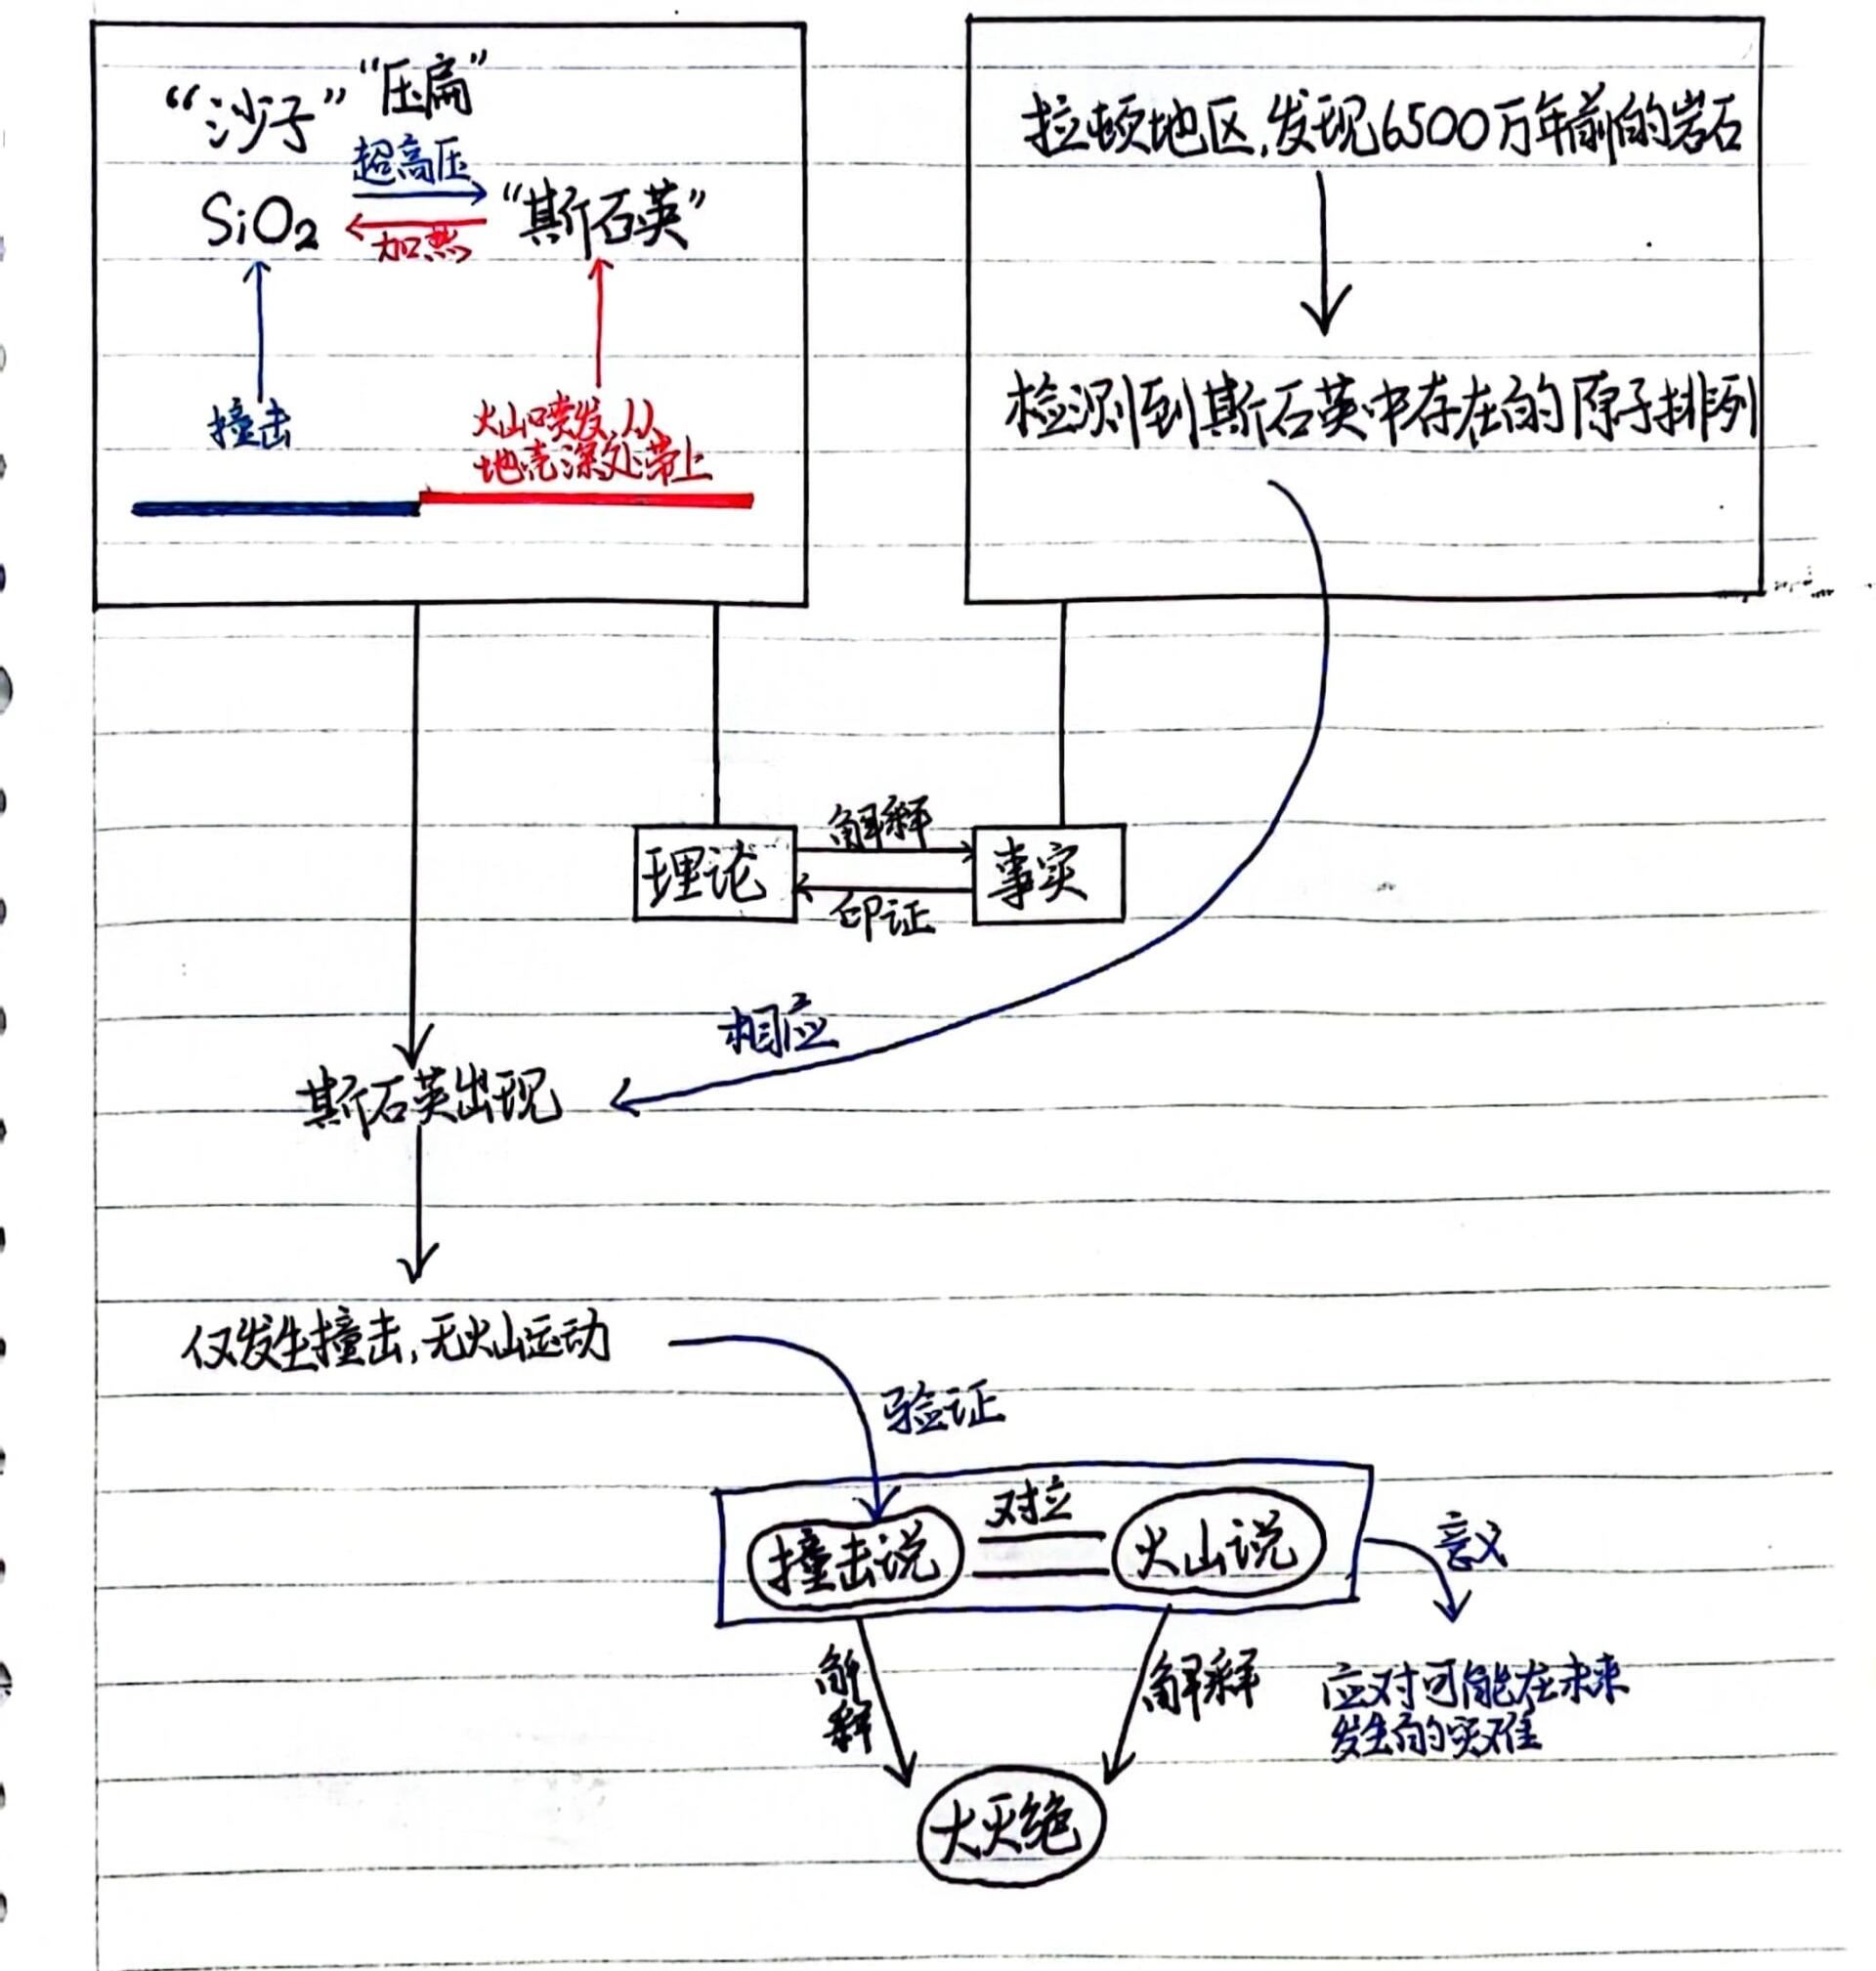 “沙子”
“压扁”
超高压
SiO₂
“斯石英”
加热
撞击
火山喷发,从
地壳深处带上
拉顿地区,发现6500万年前的岩石
检测到斯石英中存在的原子排列
理论
解释
印证
事实
相应
斯石英出现
仅发生撞击,无火山运动
验证
撞击说
对立
火山说
意义
解释
解释
应对可能在未来
发生的灾难
大灭绝